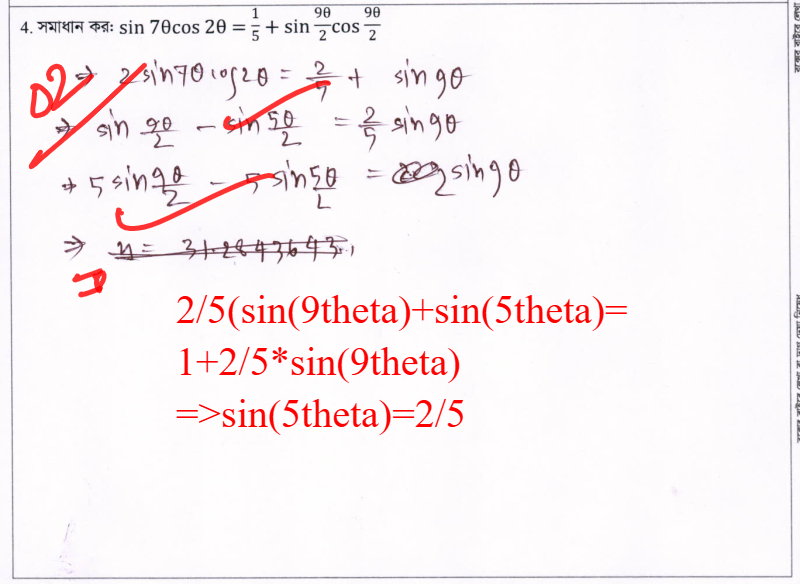 4. সমাধান করঃ sin 7θcos 2θ = 1/5 + sin 9θ/2 cos 9θ/2
02
⇒ 2 sin7θ cos2θ = 2/5 + sin 9θ
⇒ sin 9θ/2 - sin 5θ/2 = 2/5 sin 9θ
⇒ 5 sin 9θ/2 - 5 sin 5θ/2 = 2 sin 9θ
⇒
2/5(sin(9theta)+sin(5theta)=
1+2/5*sin(9theta)
=>sin(5theta)=2/5